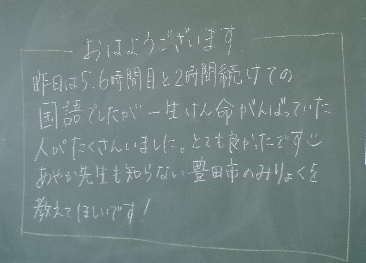 おはようございます
昨日は5.6時間目と2時間続けての
国語でしたが一生けん命がんばっていた
人がたくさんいました。とても良かったです
あやか先生も知らない豊田市のみりょくを
教えてほしいです!